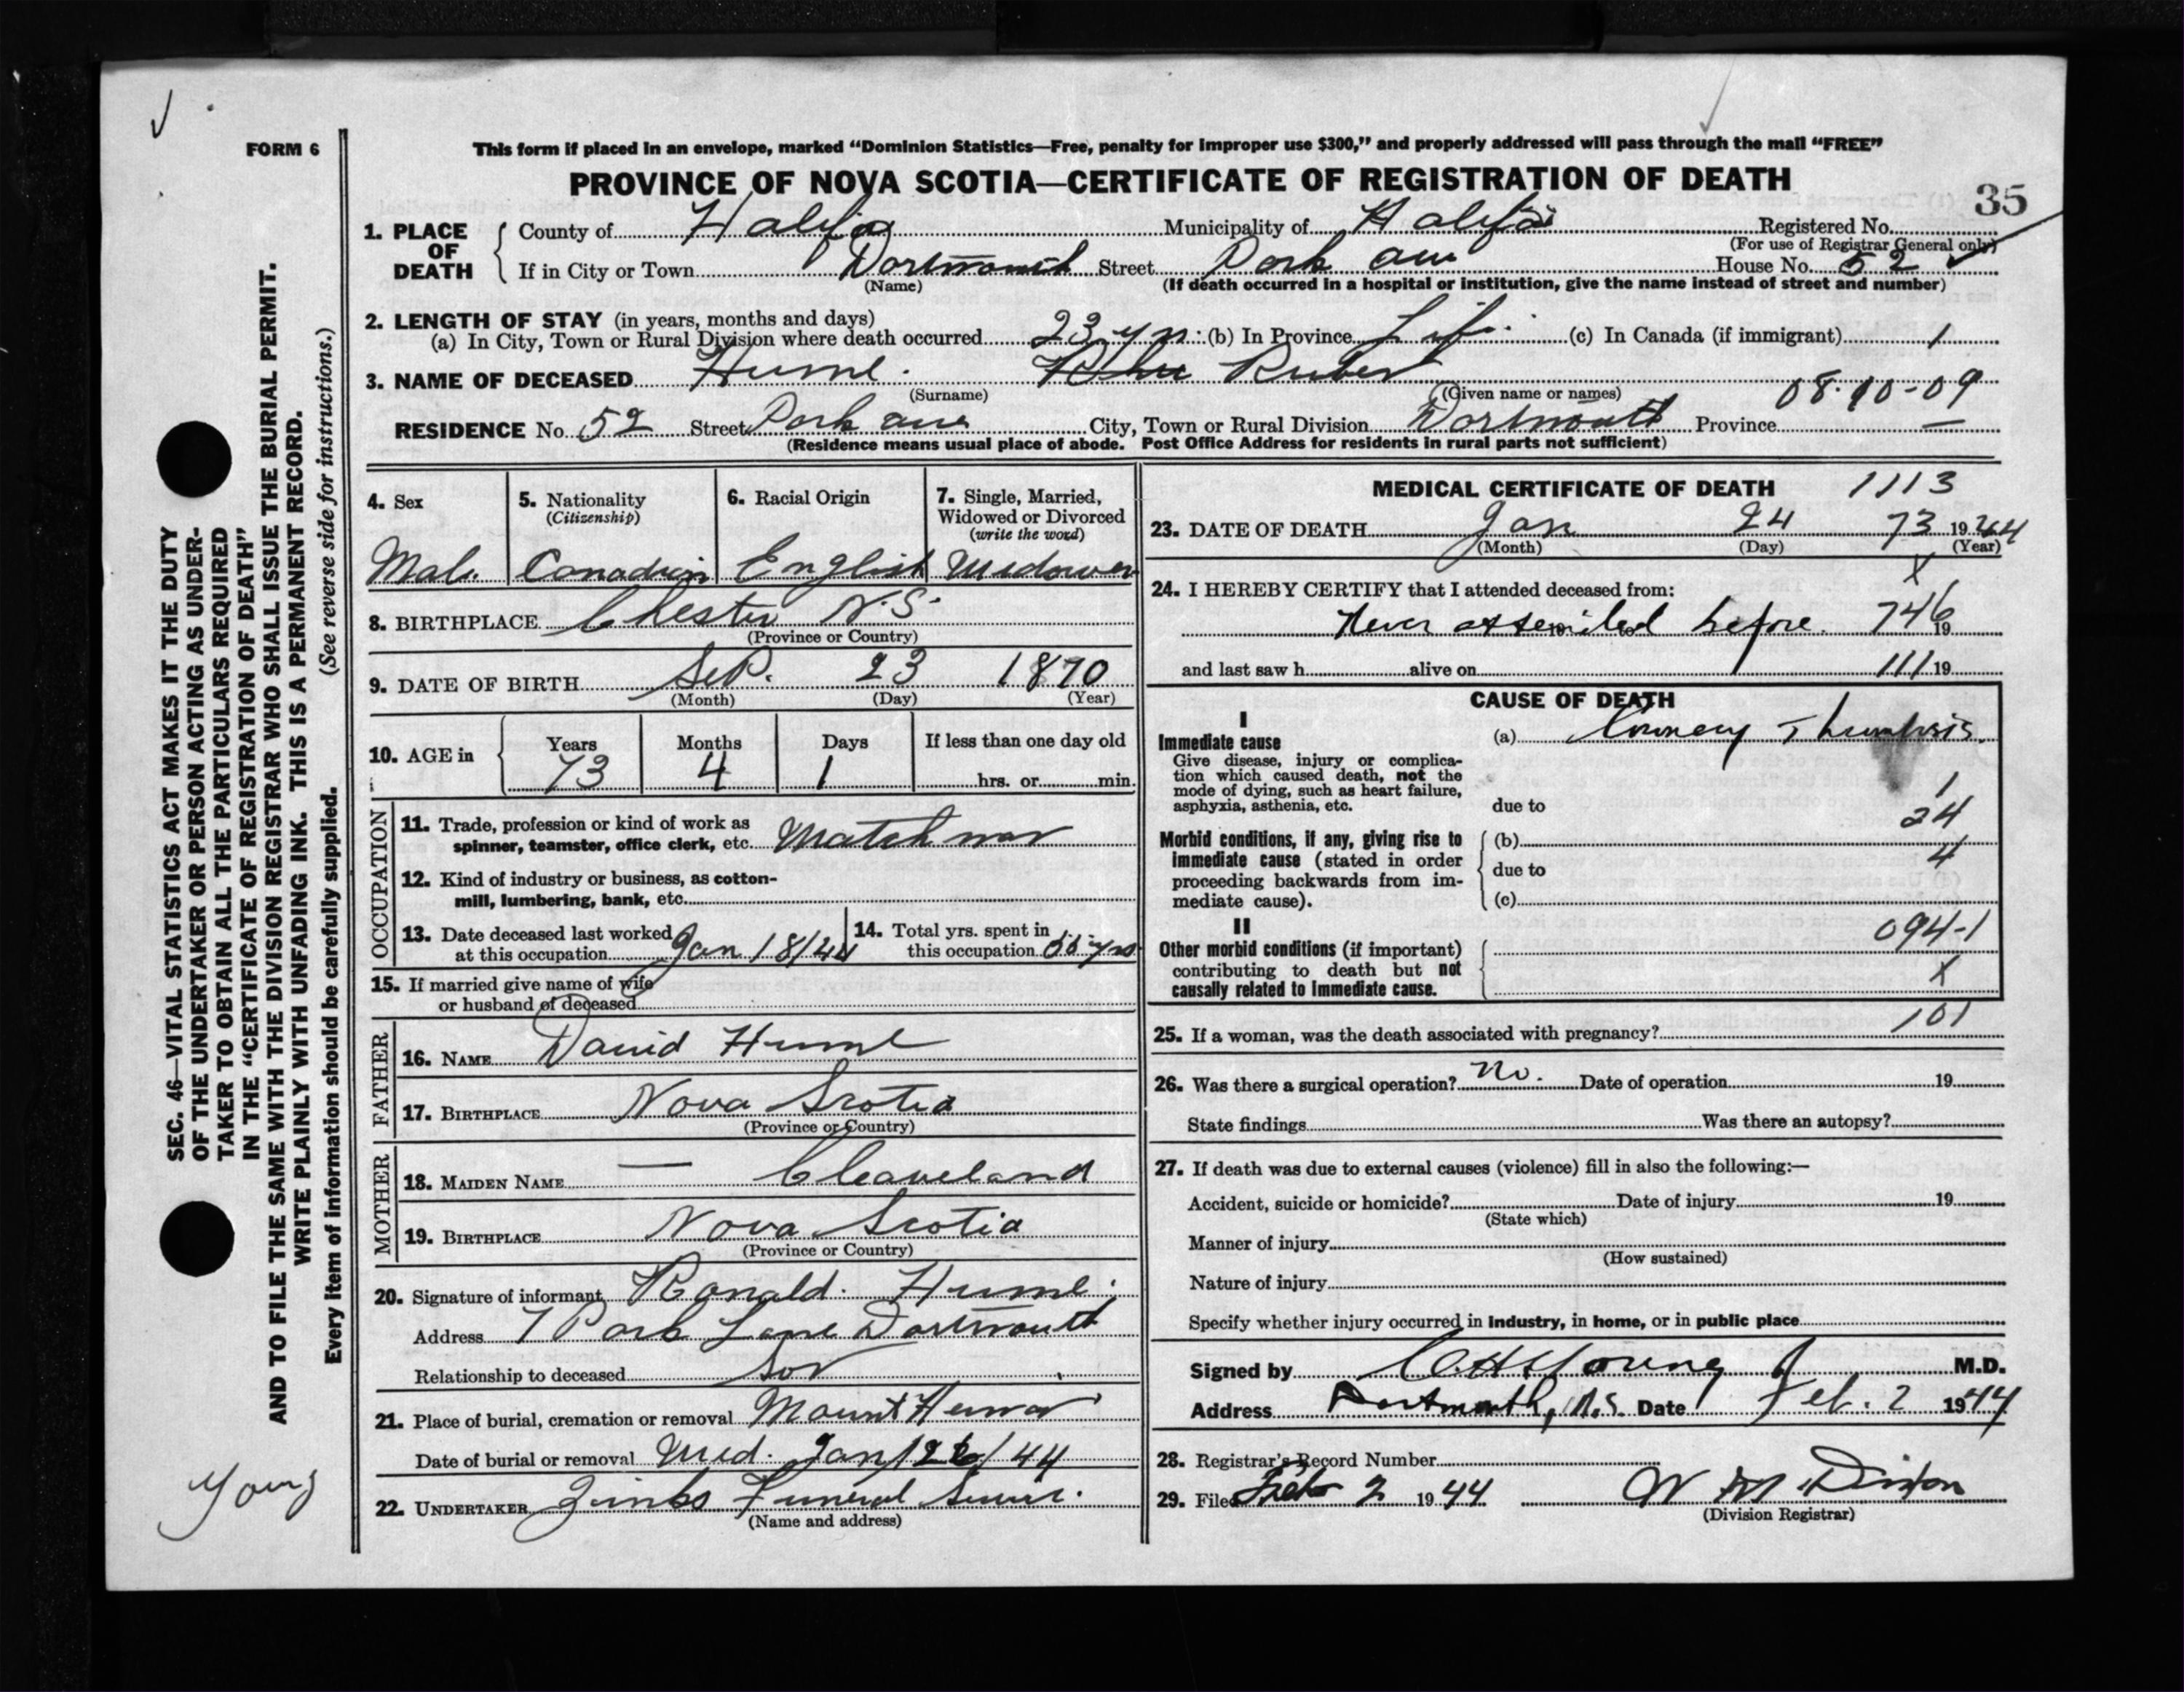 FORM 6
This form if placed in an envelope, marked “Dominion Statistics—Free, penalty for improper use $300,” and properly addressed will pass through the mail “FREE”
PROVINCE OF NOVA SCOTIA—CERTIFICATE OF REGISTRATION OF DEATH
35
1. PLACE OF DEATH
County of Halifax Municipality of Halifax Registered No.
(For use of Registrar General only)
If in City or Town Dartmouth Street Park Ave House No. 52
(Name) (If death occurred in a hospital or institution, give the name instead of street and number)
2. LENGTH OF STAY (in years, months and days)
(a) In City, Town or Rural Division where death occurred 23 yrs: (b) In Province Life. (c) In Canada (if immigrant) 1
3. NAME OF DECEASED Hume. Ruben
(Surname) (Given name or names) 08.90-09
RESIDENCE No. 52 Street Park Ave City, Town or Rural Division Dartmouth Province —
(Residence means usual place of abode. Post Office Address for residents in rural parts not sufficient)
4. Sex
Male
5. Nationality
(Citizenship)
Canadian
6. Racial Origin
English
7. Single, Married,
Widowed or Divorced
(write the word)
Widower
8. BIRTHPLACE Chester N.S.
(Province or Country)
9. DATE OF BIRTH Sep. 23 1870
(Month) (Day) (Year)
10. AGE in Years Months Days If less than one day old
73 4 1 hrs. or min.
OCCUPATION
11. Trade, profession or kind of work as
spinner, teamster, office clerk, etc. Watchman
12. Kind of industry or business, as cotton-
mill, lumbering, bank, etc.
13. Date deceased last worked
at this occupation Jan 18/44
14. Total yrs. spent in
this occupation yrs
15. If married give name of wife
or husband of deceased
FATHER
16. NAME David Hume
17. BIRTHPLACE Nova Scotia
(Province or Country)
MOTHER
18. MAIDEN NAME — Cleaveland
19. BIRTHPLACE Nova Scotia
(Province or Country)
20. Signature of informant Ronald. Hume
Address 7 Park Lane Dartmouth
Relationship to deceased Son
21. Place of burial, cremation or removal Mount Hermon
Date of burial or removal Wed. Jan / 26 / 44
22. UNDERTAKER Zinks Funeral
(Name and address)
MEDICAL CERTIFICATE OF DEATH 1113
23. DATE OF DEATH Jan 24 73 1944
(Month) (Day) (Year)
X
24. I HEREBY CERTIFY that I attended deceased from:
Never attended before. 746 19
and last saw h alive on 111 19
CAUSE OF DEATH
I
Immediate cause
Give disease, injury or complica-
tion which caused death, not the
mode of dying, such as heart failure,
asphyxia, asthenia, etc.
(a) Coronary Thrombosis.
1
due to
24
Morbid conditions, if any, giving rise to
immediate cause (stated in order
proceeding backwards from im-
mediate cause).
(b)
4
due to
(c)
II
Other morbid conditions (if important)
contributing to death but not
causally related to immediate cause.
094-1
X
25. If a woman, was the death associated with pregnancy? 101
26. Was there a surgical operation? No. Date of operation 19
State findings Was there an autopsy?
27. If death was due to external causes (violence) fill in also the following:—
Accident, suicide or homicide? Date of injury 19
(State which)
Manner of injury
(How sustained)
Nature of injury
Specify whether injury occurred in industry, in home, or in public place
Signed by C H Young M.D.
Address Dartmouth, N.S. Date Feb. 2 1944
28. Registrar's Record Number
29. Filed Feb 2 1944
(Division Registrar)
SEC. 46—VITAL STATISTICS ACT MAKES IT THE DUTY
OF THE UNDERTAKER OR PERSON ACTING AS UNDER-
TAKER TO OBTAIN ALL THE PARTICULARS REQUIRED
IN THE “CERTIFICATE OF REGISTRATION OF DEATH”
AND TO FILE THE SAME WITH THE DIVISION REGISTRAR WHO SHALL ISSUE THE BURIAL PERMIT.
WRITE PLAINLY WITH UNFADING INK. THIS IS A PERMANENT RECORD.
Every item of information should be carefully supplied. (See reverse side for instructions.)
Young